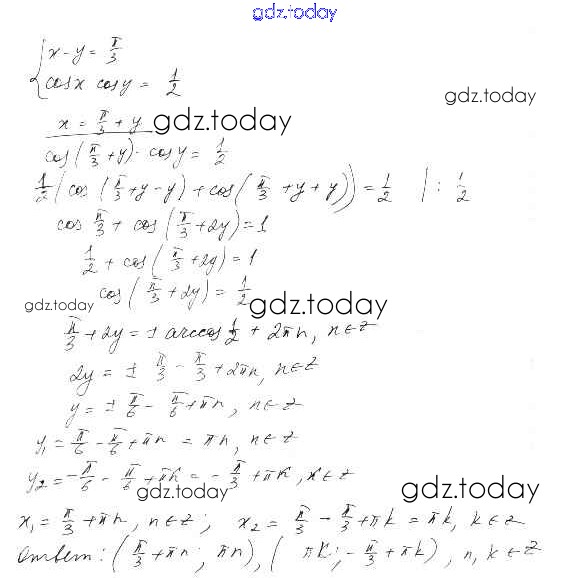 gdz.today
{ x - y = π/3
cosx cosy = 1/2
gdz.today
x = π/3 + y gdz.today
cos(π/3 + y) · cosy = 1/2
1/2(cos(π/3 + y - y) + cos(π/3 + y + y)) = 1/2 | : 1/2
cos π/3 + cos(π/3 + 2y) = 1
1/2 + cos(π/3 + 2y) = 1
gdz.today cos(π/3 + 2y) = 1/2 gdz.today
π/3 + 2y = ± arccos 1/2 + 2πn, n∈Z
2y = ± π/3 - π/3 + 2πn, n∈Z
y = ± π/6 - π/6 + πn, n∈Z
y₁ = π/6 - π/6 + πn = πn, n∈Z
y₂ = -π/6 - π/6 + πk = -π/3 + πk, k∈Z
gdz.today gdz.today
x₁ = π/3 + πn, n∈Z; x₂ = π/3 - π/3 + πk = πk, k∈Z
Ответ: (π/3 + πn; πn), (πk; -π/3 + πk), n, k∈Z